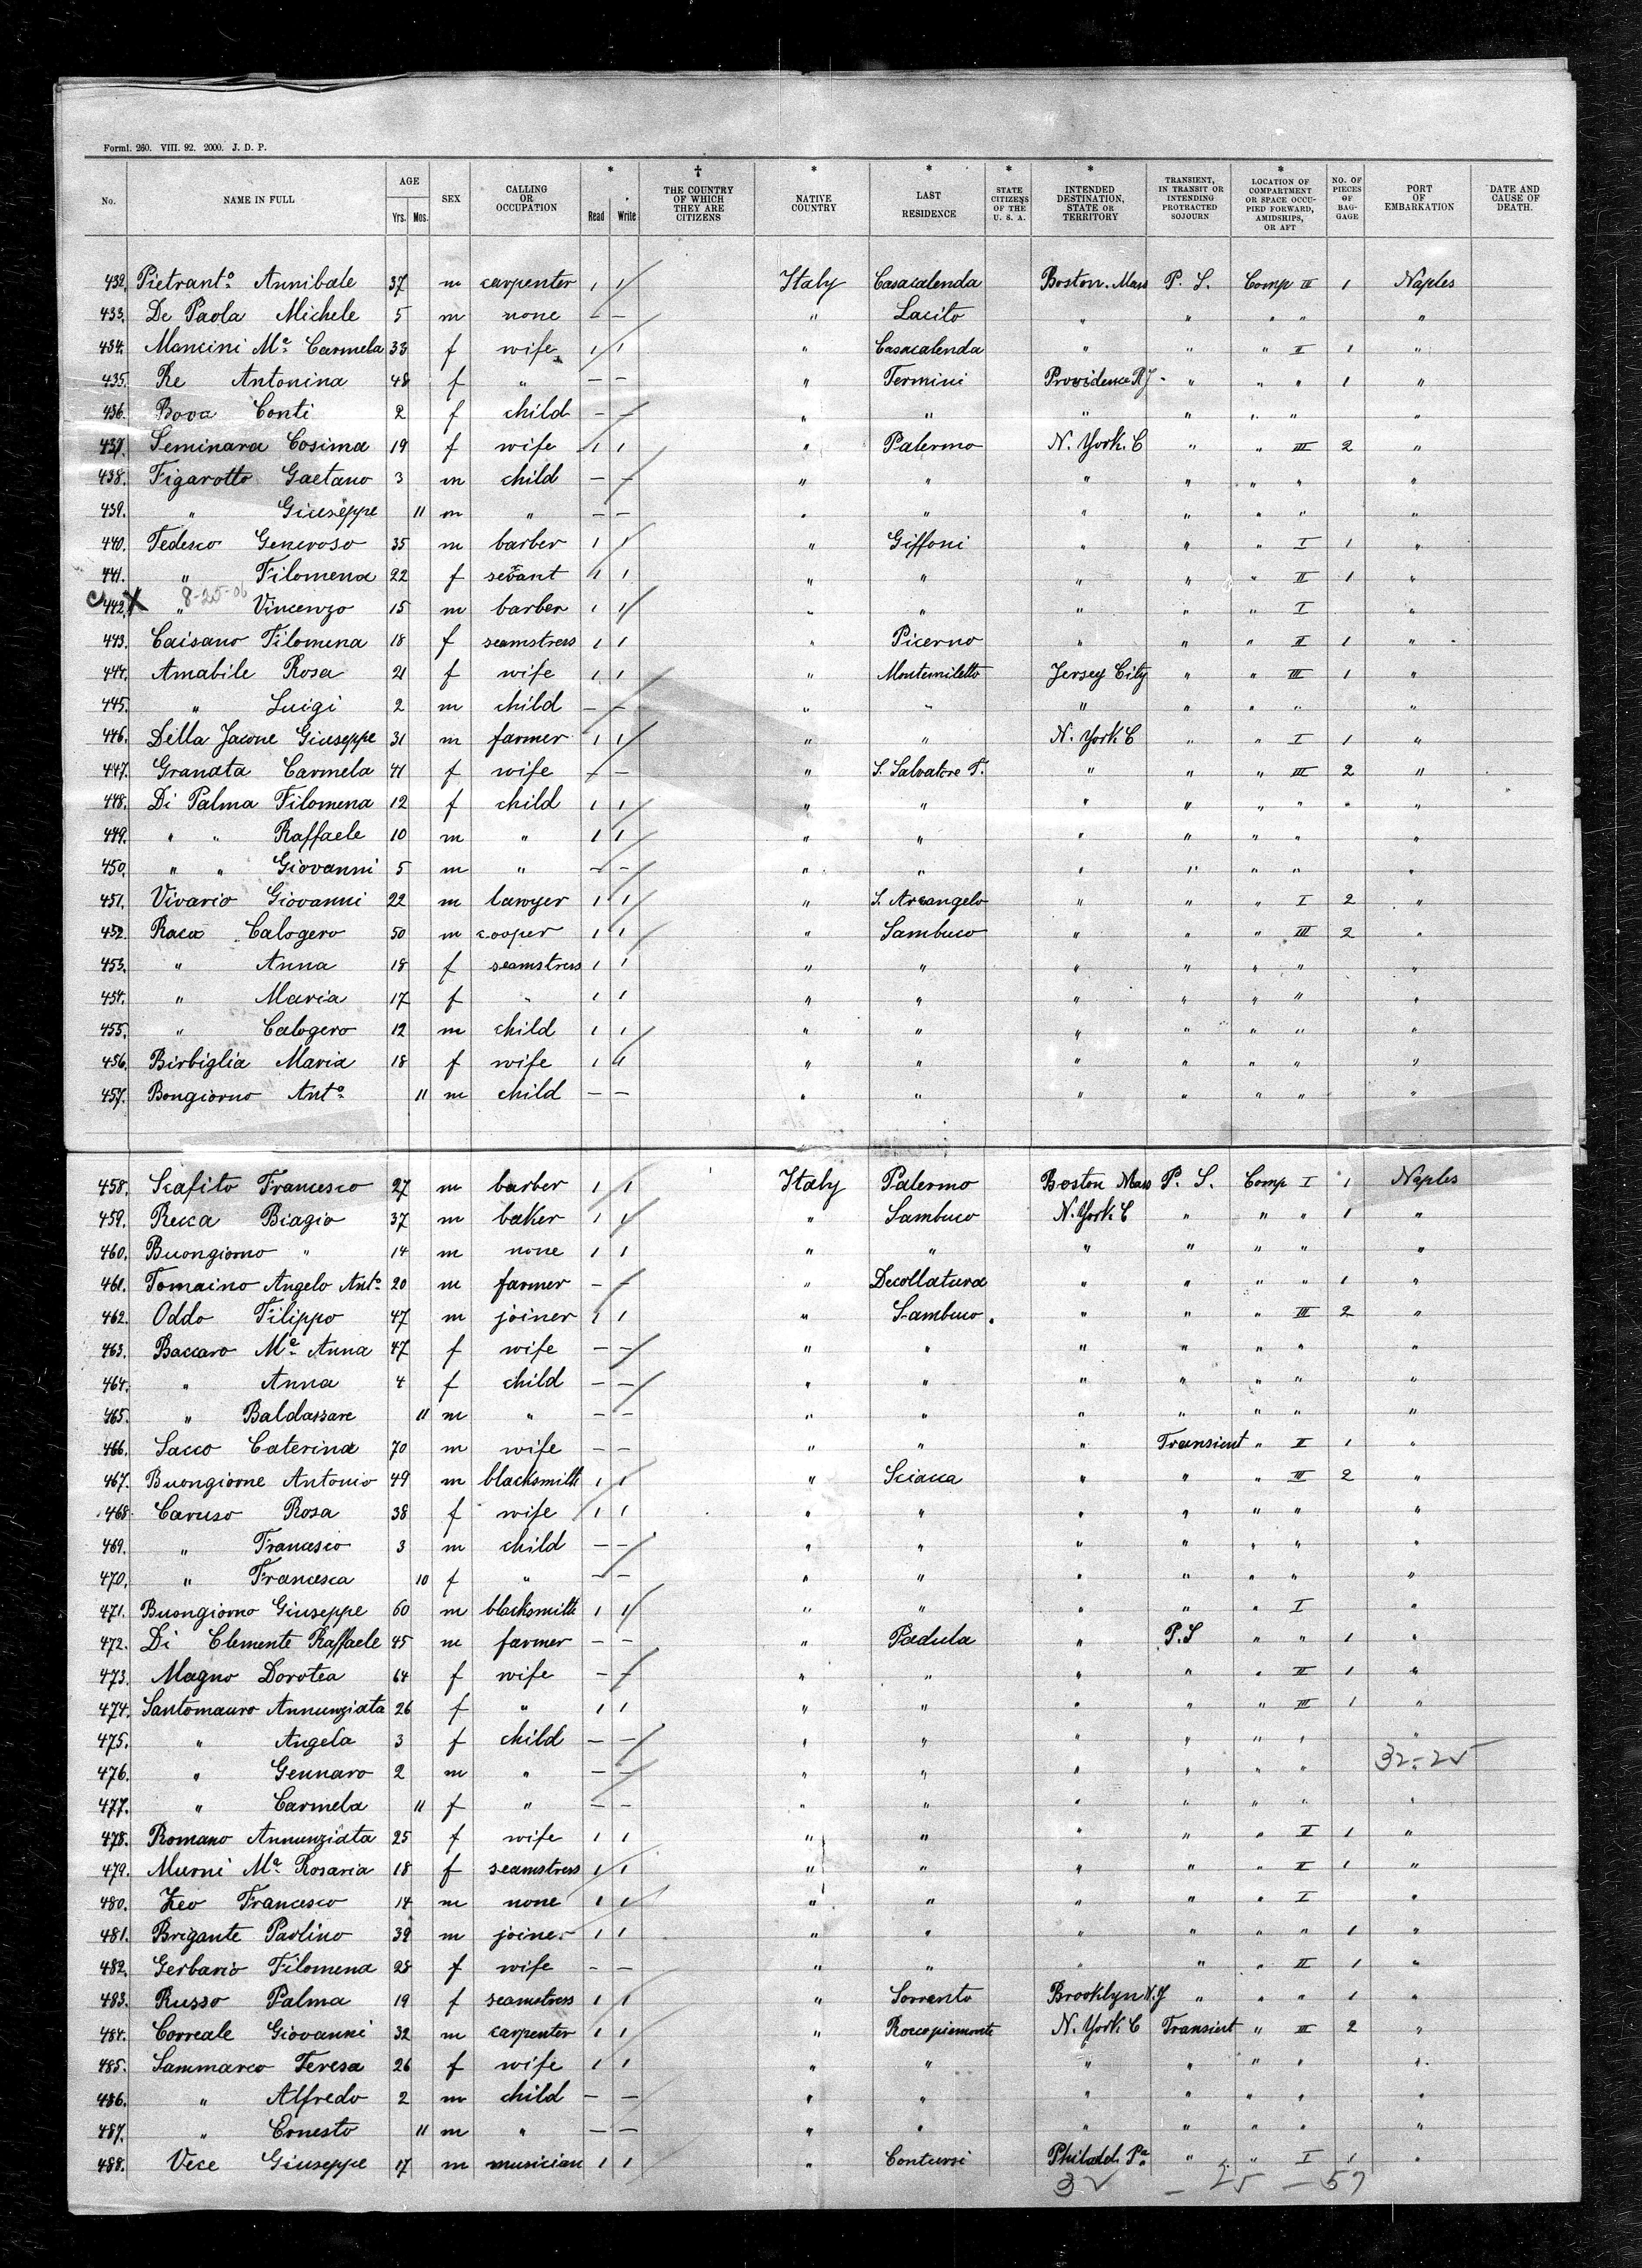 Forml. 260. VIII. 92. 2000. J. D. P.
No. NAME IN FULL AGE Yrs. Mos. SEX CALLING OR OCCUPATION * Read Write † THE COUNTRY OF WHICH THEY ARE CITIZENS * NATIVE COUNTRY * LAST RESIDENCE * STATE CITIZENS OF THE U. S. A. * INTENDED DESTINATION, STATE OR TERRITORY TRANSIENT, IN TRANSIT OR INTENDING PROTRACTED SOJOURN * LOCATION OF COMPARTMENT OR SPACE OCCUPIED FORWARD, AMIDSHIPS, OR AFT NO. OF PIECES OF BAGGAGE PORT OF EMBARKATION DATE AND CAUSE OF DEATH.
432. Pietrant.o Annibale 37 m carpenter 1 1 Italy Casacalenda Boston. Mass P. S. Comp III 1 Naples
433. De Paola Michele 5 m none — — " Lacito " " " " "
434. Mancini M.a Carmela 33 f wife 1 1 " Casacalenda " " " II 1 "
435. Re Antonina 48 f " — — " Termini Providence R J " " " 1 "
436. Bova Conti 2 f child — — " " " " " " "
437. Seminara Cosima 19 f wife 1 1 " Palermo N. York. C " " III 2 "
438. Figarotto Gaetano 3 m child — — " " " " " " "
439. " Giuseppe 11 m " — — " " " " " " "
440. Tedesco Generoso 35 m barber 1 1 " Giffoni " " " I 1 "
441. " Filomena 22 f sevant 1 1 " " " " " II 1 "
442. X " 8-25-06 Vincenzo 15 m barber 1 1 " " " " " I "
443. Caisano Filomena 18 f seamstress 1 1 " Picerno " " " II 1 "
444. Amabile Rosa 21 f wife 1 1 " Montemiletto Jersey City " " III 1 "
445. " Luigi 2 m child — — " " " " " " "
446. Della Jacone Giuseppe 31 m farmer 1 1 " " N. York C " " I 1 "
447. Granata Carmela 41 f wife — — " S. Salvatore T. " " " III 2 "
448. Di Palma Filomena 12 f child 1 1 " " " " " " " "
449. " " Raffaele 10 m " 1 1 " " " " " " "
450. " " Giovanni 5 m " — — " " " " " " "
451. Vivario Giovanni 22 m lawyer 1 1 " S. Arcangelo " " " I 2 "
452. Raca Calogero 50 m cooper 1 1 " Sambuco " " " III 2 "
453. " Anna 18 f seamstress 1 1 " " " " " " "
454. " Maria 17 f " 1 1 " " " " " " "
455. " Calogero 12 m child 1 1 " " " " " " "
456. Birbiglia Maria 18 f wife 1 1 " " " " " " "
457. Bongiorno Ant.o 11 m child — — " " " " " " "
458. Scafito Francesco 27 m barber 1 1 Italy Palermo Boston Mass P. S. Comp I 1 Naples
459. Recca Biagio 37 m baker 1 1 " Sambuco N. York C " " " 1 "
460. Buongiorno " 14 m none 1 1 " " " " " " "
461. Tomaino Angelo Ant.o 20 m farmer — — " Decollatura " " " " 1 "
462. Oddo Filippo 47 m joiner 1 1 " Sambuco. " " " III 2 "
463. Baccaro M.a Anna 47 f wife — — " " " " " " "
464. " Anna 4 f child — — " " " " " " "
465. " Baldassare 11 m " — — " " " " " " "
466. Sacco Caterina 70 m wife — — " " " Transient " II 1 "
467. Buongiorne Antonio 49 m blacksmith 1 1 " Sciacca " " " III 2 "
468. Caruso Rosa 38 f wife 1 1 " " " " " " "
469. " Francesco 3 m child — — " " " " " " "
470. " Francesca 10 f " — — " " " " " " "
471. Buongiorno Giuseppe 60 m blacksmith 1 1 " " " " " I "
472. Di Clemente Raffaele 45 m farmer — — " Padula " P.S " " 1 "
473. Magno Dorotea 64 f wife — — " " " " " II 1 "
474. Santomauro Annunziata 26 f " 1 1 " " " " " III 1 "
475. " Angela 3 f child — — " " " " " " "
476. " Gennaro 2 m " — — " " " " " " 32-25
477. " Carmela 11 f " — — " " " " " " "
478. Romano Annunziata 25 f wife 1 1 " " " " " II 1 "
479. Murni M.a Rosaria 18 f seamstress 1 1 " " " " " II 1 "
480. Zeo Francesco 14 m none 1 1 " " " " " I "
481. Brigante Paolino 39 m joiner 1 1 " " " " " " 1 "
482. Gerbario Filomena 28 f wife — — " " " " " II 1 "
483. Russo Palma 19 f seamstress 1 1 " Sorrento Brooklyn N.J " " " 1 "
484. Correale Giovanni 32 m carpenter 1 1 " Roccapiemonte N. York C Transient " III 2 "
485. Sammarco Teresa 26 f wife 1 1 " " " " " " "
486. " Alfredo 2 m child — — " " " " " " "
487. " Ernesto 11 m " — — " " " " " " "
488. Vece Giuseppe 17 m musician 1 1 " Contursi Philadel. Pa " " I 1 "
32 — 25 — 57